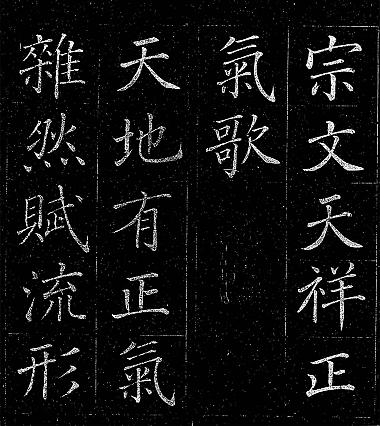 宗文天祥正
氣歌
天地有正氣
雜然賦流形